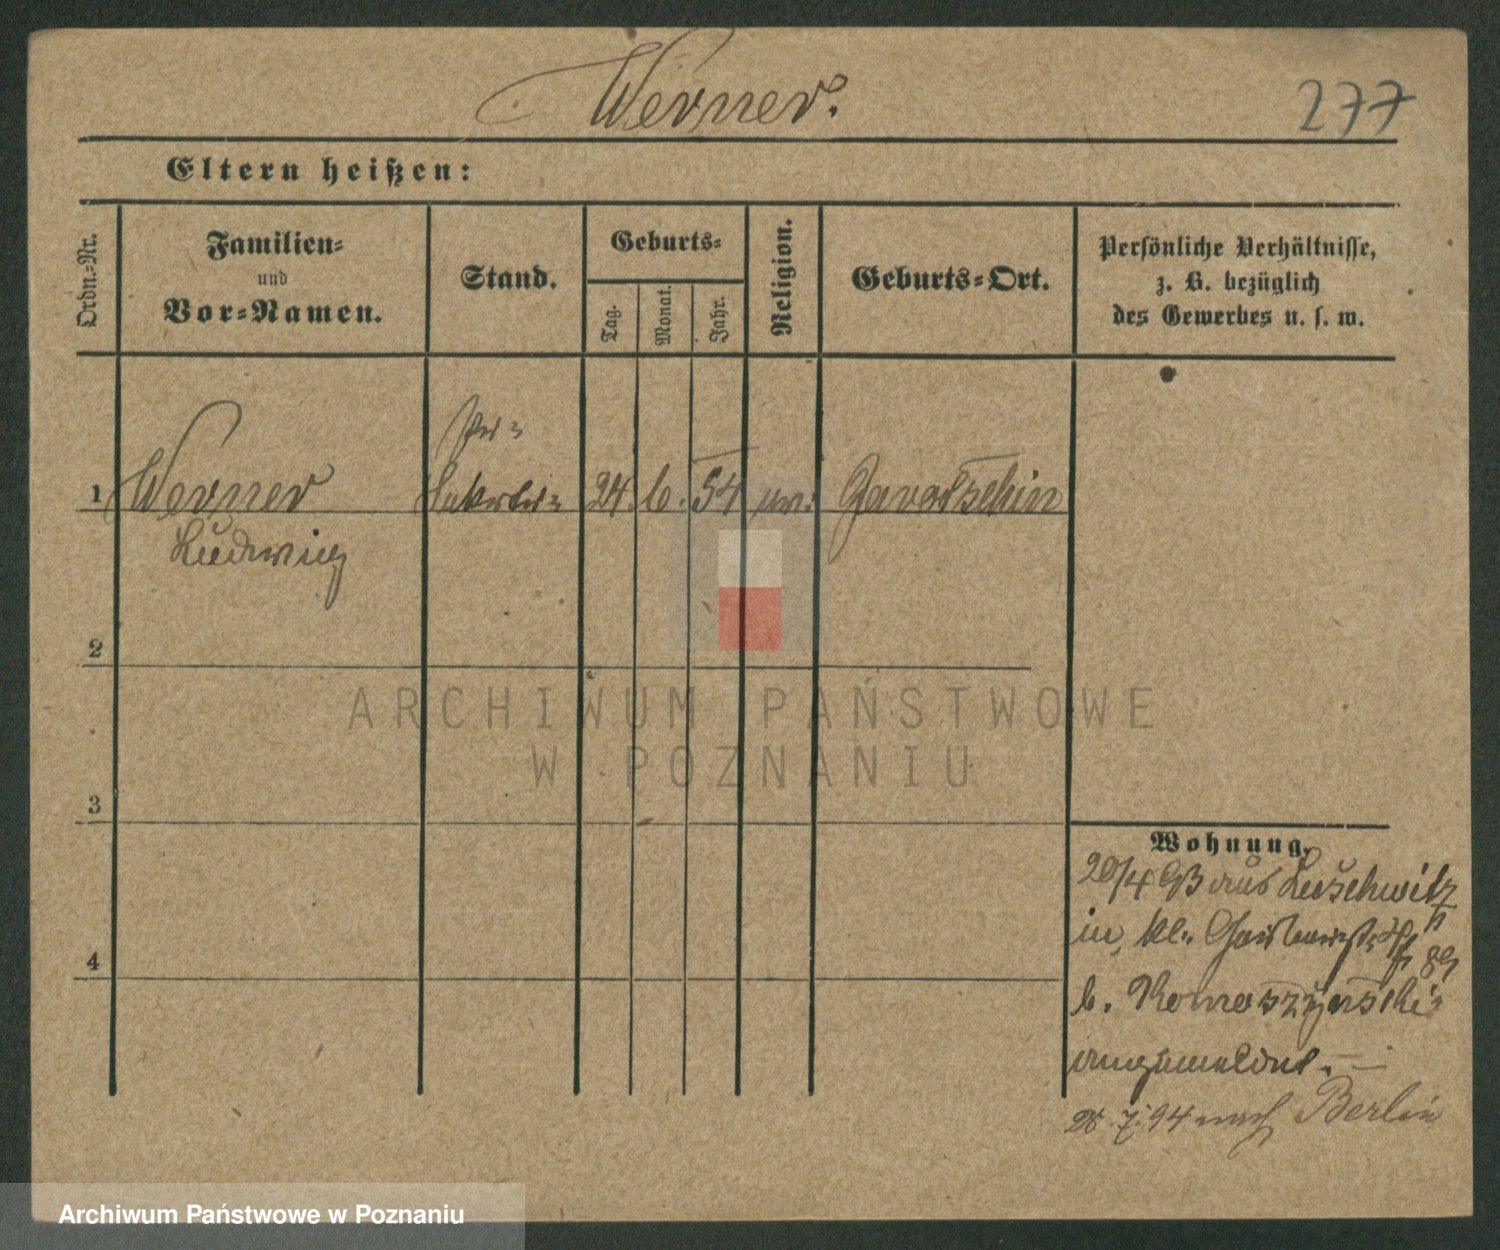 Werner.
277
Eltern heißen:
Ordn.-Nr.
Familien-
und
Vor-Namen.
Stand.
Geburts-
Tag.
Monat.
Jahr.
Religion.
Geburts-Ort.
Persönliche Verhältnisse,
z. B. bezüglich
des Gewerbes u. s. w.
1 Werner 24. 6. 54
Ludwig
2
3
4
Wohnung.
20/4 93 aus Luschwitz
in, kl.
b. Romaszynski
angemeldet.
28. 7. 94 nach Berlin
ARCHIWUM PAŃSTWOWE
W POZNANIU
Archiwum Państwowe w Poznaniu